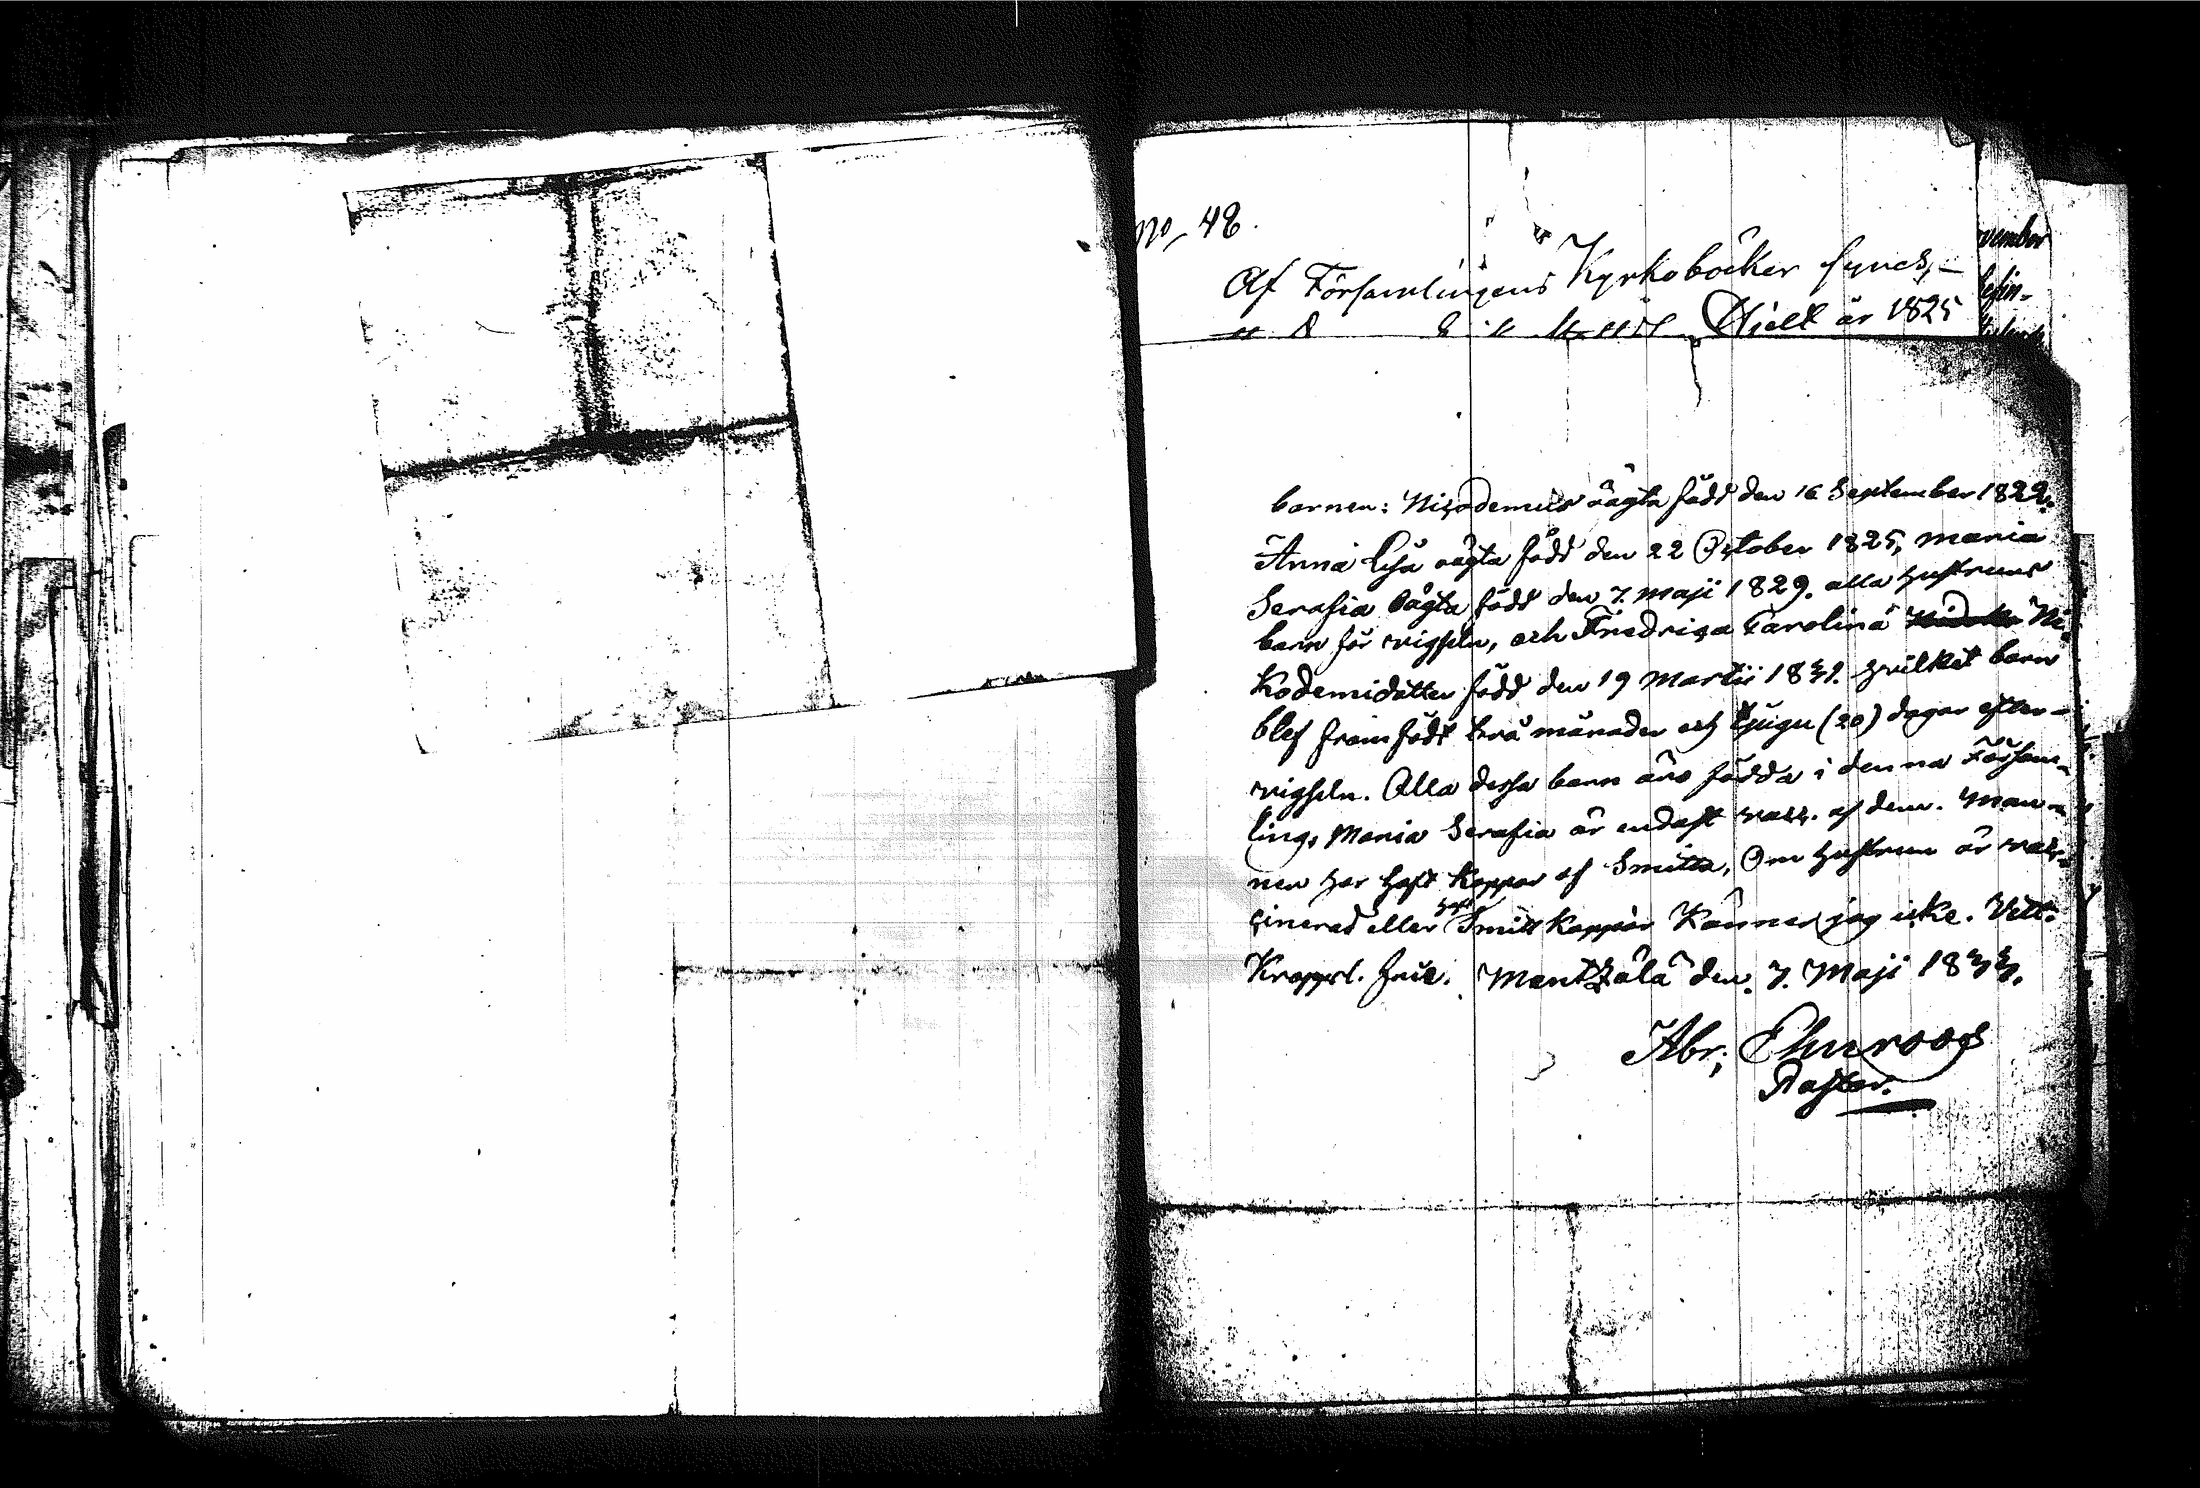 No 48.
Af Församlingens Kyrkoböcker synes,
Hjelt år 1825
vember
barnen: Nicodemus oägta född den 16 September 1822.
Anna Lisa oägta född den 22 October 1825, Maria
Serafia oägta född den 7. Maji 1829. alla Hustruns
barn för vigseln, och Fredrica Carolina Ni-
kodemidotter född den 19 Martii 1831. hvilket barn
blef framfödt två månader och tjugu (20) dagar efter
vigseln. Alla dessa barn äro födda i denna Försam-
ling, Maria Serafia är endast vacc. af dem. Man-
nen har haft koppor af Smitta, Om hustrun är vac-
cinerad eller haft Smittkoppor känner jag icke. Vitt.
Kroppsl. frie. Mentzälä den 7. Maji 1833.
Abr; Elmroos
Pastor.